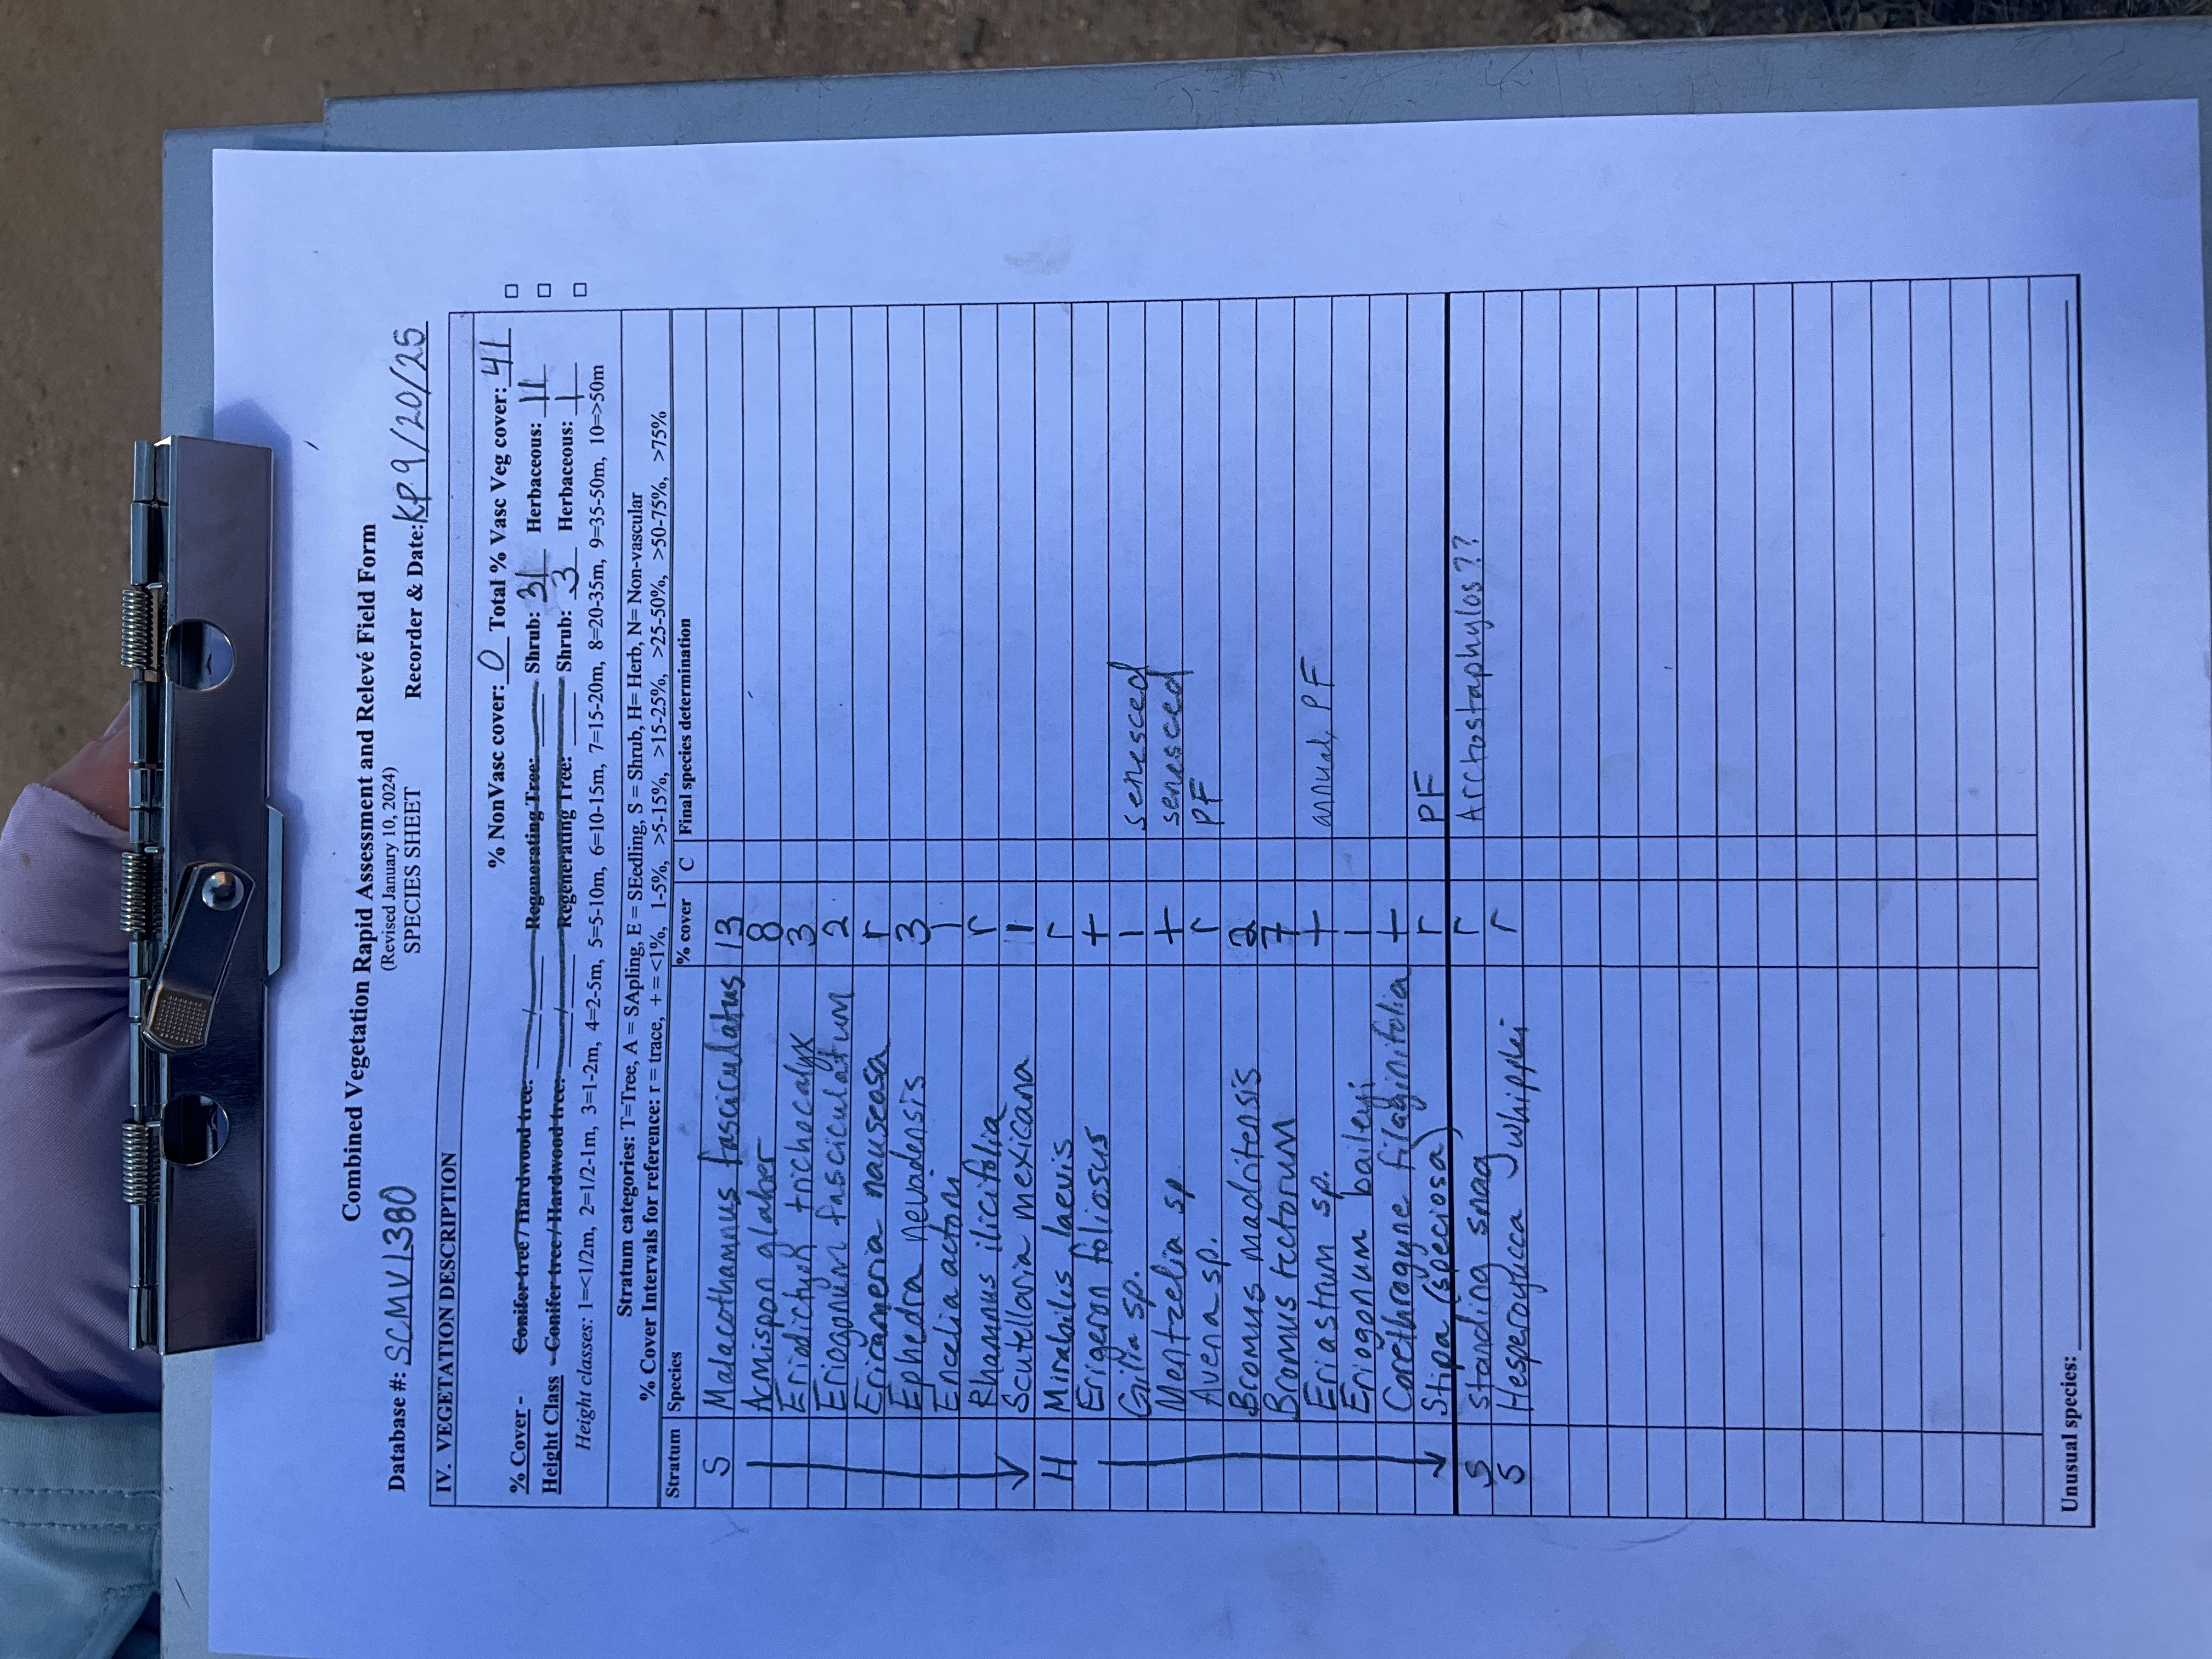 Combined Vegetation Rapid Assessment and Relevé Field Form
(Revised January 10, 2024)
Database #: SCMV1380 SPECIES SHEET Recorder & Date: KP 9/20/25
IV. VEGETATION DESCRIPTION
% NonVasc cover: 0 Total % Vasc Veg cover: 41
% Cover - Conifer tree / Hardwood tree: / Regenerating Tree: Shrub: 31 Herbaceous: 11
Height Class - Conifer tree / Hardwood tree: / Regenerating Tree: Shrub: 3 Herbaceous: 1
Height classes: 1=<1/2m, 2=1/2-1m, 3=1-2m, 4=2-5m, 5=5-10m, 6=10-15m, 7=15-20m, 8=20-35m, 9=35-50m, 10=>50m
Stratum categories: T=Tree, A = SApling, E = SEedling, S = Shrub, H= Herb, N= Non-vascular
% Cover Intervals for reference: r = trace, + = <1%, 1-5%, >5-15%, >15-25%, >25-50%, >50-75%, >75%
Stratum Species % cover C Final species determination
S Malacothamnus fasciculatus 13
Acmispon glaber 8
Eriodictyon trichocalyx 3
Eriogonum fasciculatum 2
Ericameria nauseosa r
Ephedra nevadensis 3
Encelia actoni 1
Rhamnus ilicifolia r
Scutellaria mexicana 1
H Mirabilis laevis r
Erigeron foliosus +
Gilia sp. 1 senesced
Mentzelia sp + senesced
Avena sp. r PF
Bromus madritensis 2
Bromus tectorum 7
Eriastrum sp. + annual, PF
Eriogonum baileyi 1
Corethrogyne filaginifolia +
Stipa (speciosa) r PF
S standing snag r Arctostaphylos??
S Hesperoyucca whipplei r
Unusual species: